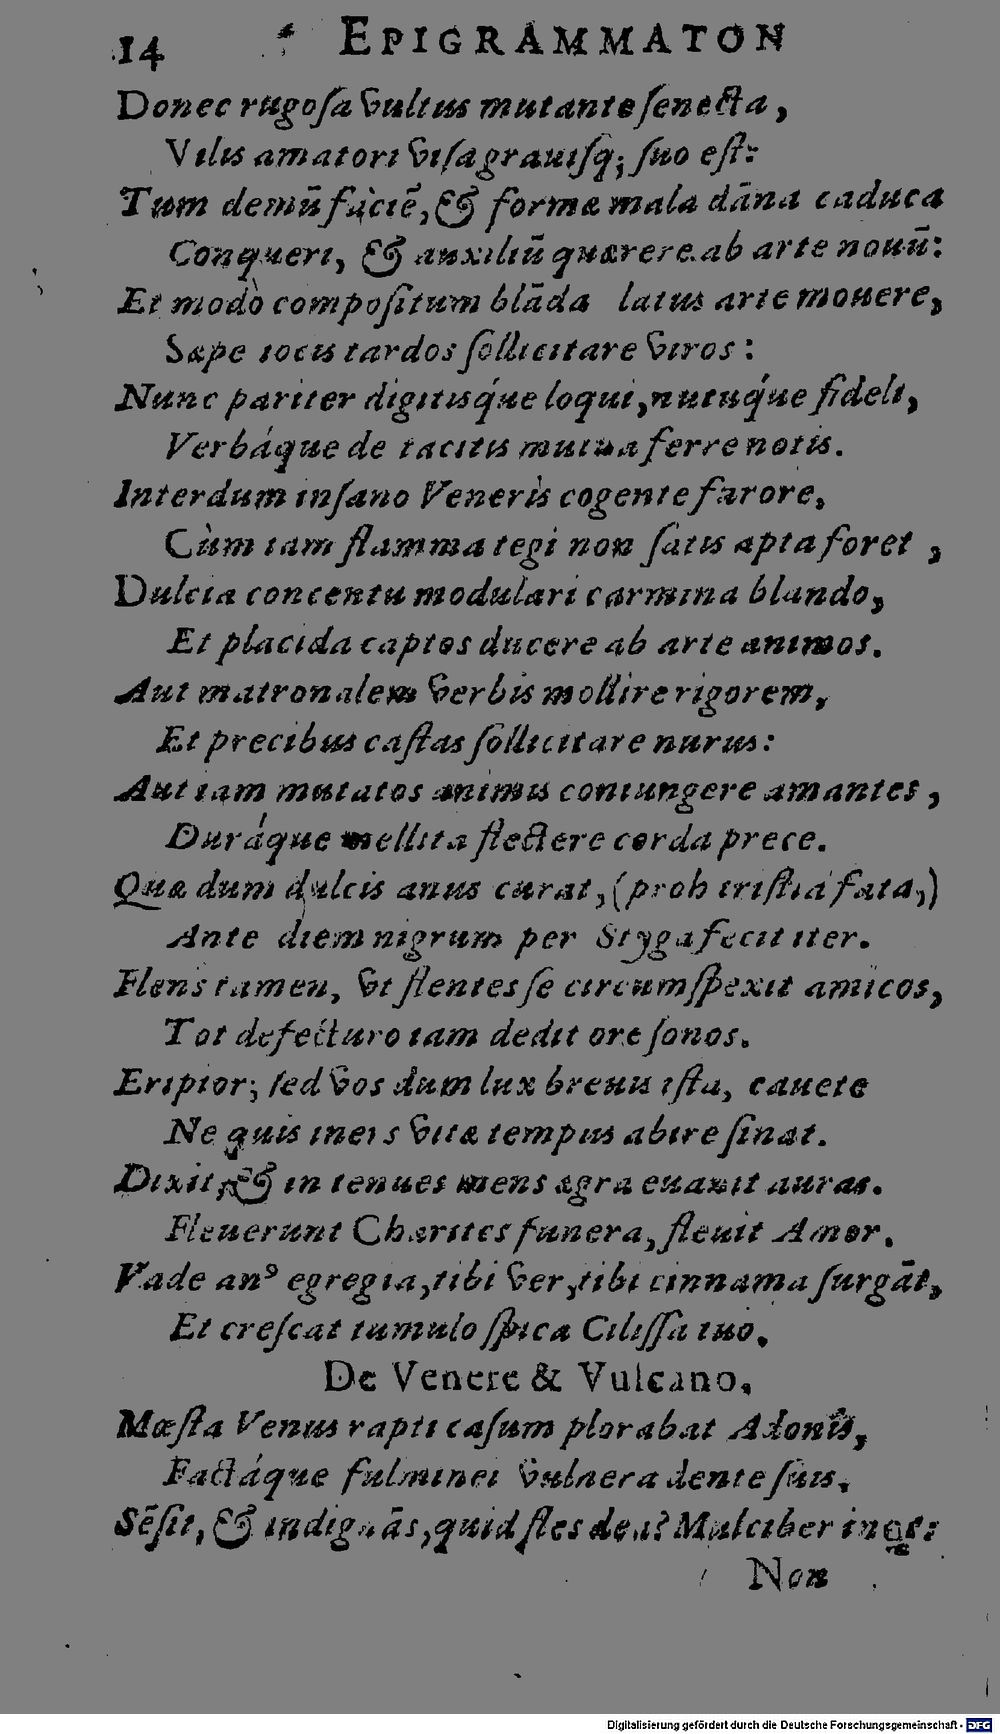 14 EPIGRAMMATON
Donec rugosa vultus mutante senecta,
Vilis amatori visa grauisq; suo est:
Tum demũ faciẽ, & formæ mala dãna caduca
Conqueri, & auxiliũ quærere ab arte nouũ:
Et modò compositum blãda latus arte mouere,
Sæpe iocis tardos sollicitare viros:
Nunc pariter digitisq́ue loqui, nutuq́ue fideli,
Verbáque de tacitis mutua ferre notis.
Interdum insano Veneris cogente furore,
Cùm iam flamma tegi non satis apta foret,
Dulcia concentu modulari carmina blando,
Et placida captos ducere ab arte animos.
Aut matronalem verbis mollire rigorem,
Et precibus castas sollicitare nurus:
Aut iam mutatos animis coniungere amantes,
Duráque mellita flectere corda prece.
Quæ dum dulcis anus curat, (proh tristia fata,)
Ante diem nigrum per Styga fecit iter.
Flens tamen, vt flentes se circumspexit amicos,
Tot defecturo iam dedit ore sonos.
Eripior; sed vos dum lux breuis ista, cauete
Ne quis iners vitæ tempus abire sinat.
Dixit, & in tenues mens ægra euasit auras.
Fleuerunt Charites funera, fleuit Amor.
Vade anꝰ egregia, tibi ver, tibi cinnama surgãt,
Et crescat tumulo spica Cilissa tuo.
De Venere & Vulcano.
Mœsta Venus rapti casum plorabat Adonis,
Factáque fulminei vulnera dente suis.
Sẽsit, & indignãs, quid fles dea? Mulciber inqt:
Non
Digitalisierung gefördert durch die Deutsche Forschungsgemeinschaft - DFG